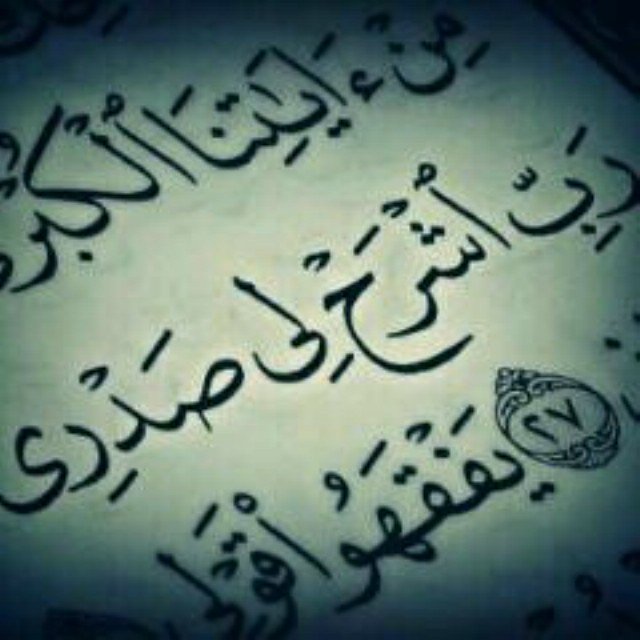 مِنْ ءَايَٰتِنَا ٱلْكُبْرَى
رَبِّ ٱشْرَحْ لِى صَدْرِى
٢٧
يَفْقَهُوا۟ قَوْلِى